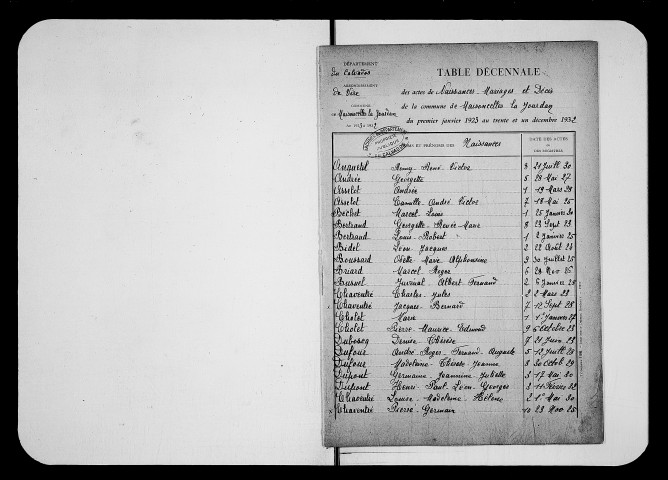 DÉPARTEMENT
du Calvados
TABLE DÉCENNALE
ARRONDISSEMENT
De Vire
des actes de Naissances - Mariages et Décès
COMMUNE
Maisoncelles la Jourdan
de la commune de Maisoncelles la Jourdan
du premier janvier 1923 au trente et un décembre 1932
NOMS ET PRÉNOMS DES Naissances
DATE DES ACTES
OU
DES REGISTRES
Anquetil Remy René Victor 3 21 Juill 30
Andrée Georgette 5 29 Mai 27
Asselot Andrée 1 19 Mars 29
Asselot Camille André Victor 7 18 Mai 25
Béchet Marcel Louis 1 25 Janvier 30
Bertrand Georgette Renée Marie 8 23 Sept 23
Bertrand Louis Robert 1 2 Janvier 25
Bidet Léon Jacques 2 22 Août 24
Boussard Odette Marie Alphonsine 9 30 Juillet 25
Briard Marcel Roger 6 29 Nov 25
Busnel Juvénal Albert Fernand 2 6 Janvier 28
Chaventré Charles Jules 2 2 Mars 23
Chaventré Jacques Bernard 7 12 Sept 28
Cholet Marie 1 1er Janvier 27
Cholet Pierre Maurice Edmond 9 6 Octobre 23
Duboscq Denise Thérèse 7 21 Juin 23
Dufour André Roger Fernand Auguste 5 12 Juill 28
Dufour Madeleine Thérèse Jeanne 8 30 Octob 29
Dupont Germaine Jeannine Juliette 3 17 Mai 30
Dupont Henri Paul Léon Georges 3 11 Février 32
Chaventré Louise Madeleine Hélène 2 1er Mai 30
Chaventré Pierre Germain 10 23 Nov 25